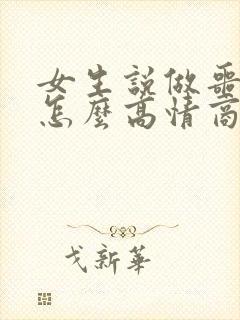 女生説做噩
怎麼高情商
戈新華